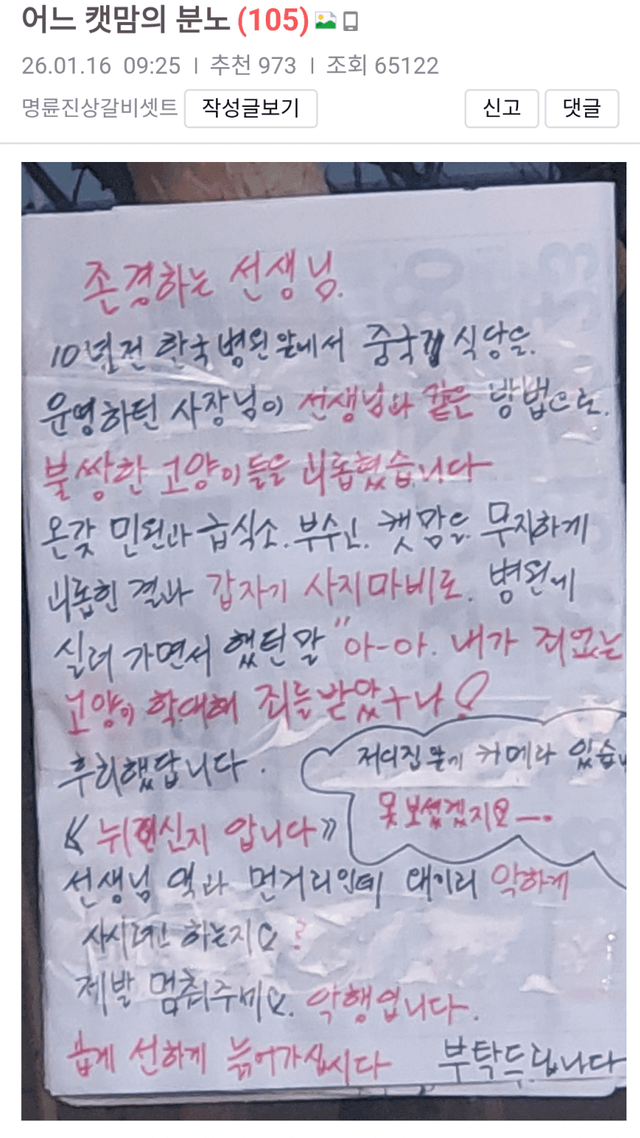 어느 캣맘의 분노 (105)
26.01.16 09:25 | 추천 973 | 조회 65122
명륜진상갈비셋트 작성글보기 신고 댓글
존경하는 선생님.
10년전 한국병원앞에서 중국집 식당을.
운영하던 사장님이 선생님과 같은 방법으로.
불쌍한 고양이들을 괴롭혔습니다
온갖 민원과 급식소. 부수고. 캣맘을 무지하게
괴롭힌 결과 갑자기 사지마비로. 병원에
실려 가면서 했던말 "아-아. 내가 죄없는
고양이 학대해 죄를받았구나!
후회했답니다.
저의집앞에 카메라 있습니
못보셨겠지요—.
《뉘현신지 압니다》
선생님 역과 먼거리인데 왜이리 악하게
사시려고 하는지요?
제발 멈춰주세요. 악행입니다.
곱게 선하게 늙어가십시다 부탁드립니다